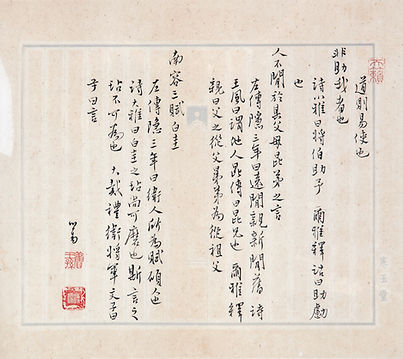 道則易使也
非助我者也
詩小雅曰將伯助予 爾雅釋詁曰助勴
也
人不閒於其父母昆弟之言
左傳隱三年曰遠閒親新閒舊 詩
王風曰謂他人昆傳曰昆兄也 爾雅釋
親曰父之從父弟為從祖父
南容三白圭
左傳隱三年曰衛人所為賦碩人也
詩大雅曰白圭之玷尚可磨也斯言之
玷不可為也 大戴禮衛將軍文子曰
子曰言
寒玉堂